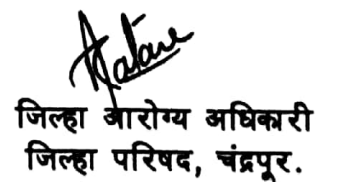 जिल्हा आरोग्य अधिकारी
जिल्हा परिषद, चंद्रपूर.